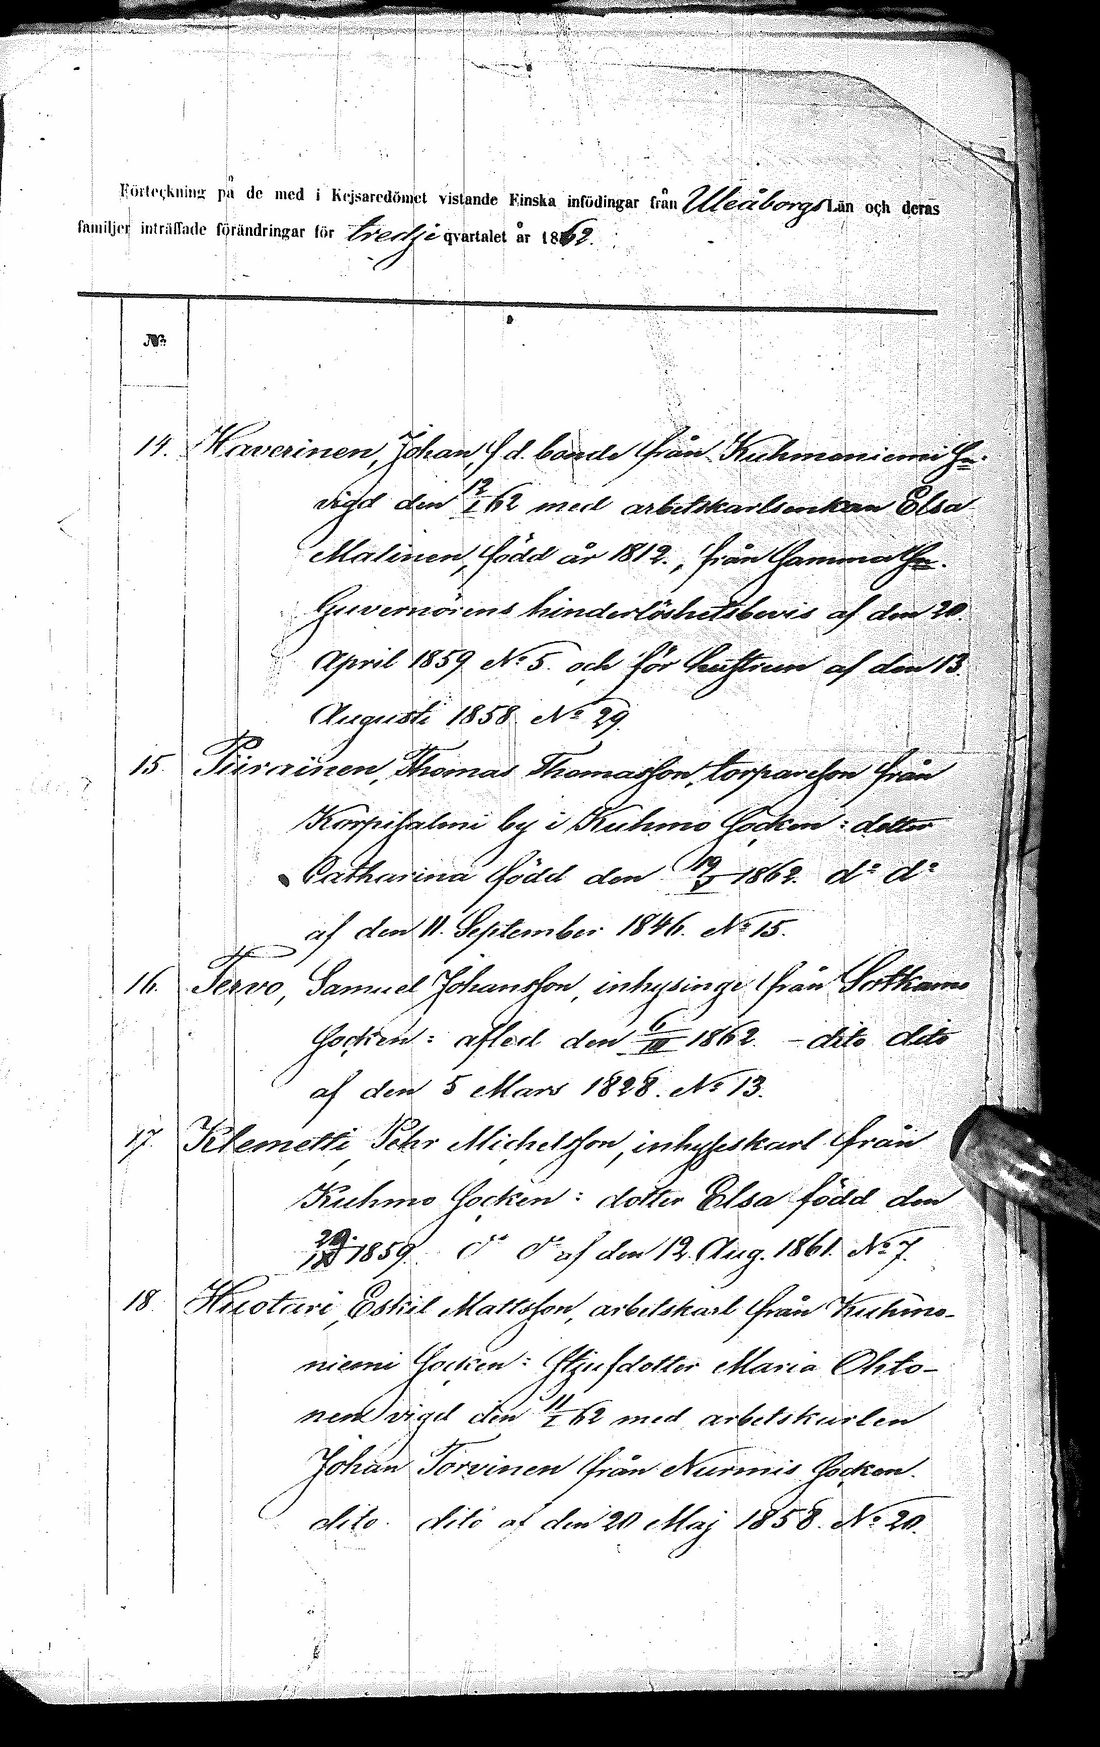 Förteckning på de med i Kejsaredömet vistande Finska infödingar från Uleåborgs Län och deras
familjer inträffade förändringar för tredje qvartalet år 1862.
No
14. Haverinen, Johan, f.d. bonde från Kuhmoniemi Sn.
vigd den 12/I 62 med arbetskarlsenkan Elsa
Malinen, född år 1812., från samma Sn.
Guvernörens hinderlöshetsbevis af den 20.
April 1859 No 5. och för hustrun af den 13.
Augusti 1858. No 29.
15. Piirainen, Thomas Thomasson, torpareson från
Korpisalmi by i Kuhmo Socken: dotter
Catharina född den 19/V 1862. do do
af den 11. September 1846. No 15.
16. Tervo, Samuel Johansson, inhysinge från Sotkamo
Socken: afled den 6/III 1862. - dito dito
af den 5 Mars 1828. No 13.
17. Klemetti, Pehr Michelsson, inhyseskarl från
Kuhmo Socken: dotter Elsa född den
29. 1859. do do af den 12. Aug. 1861. No 7.
18. Huotari, Eskil Mattsson, arbetskarl från Kuhmo-
niemi Socken: styfdotter Maria Ohto-
nen vigd den 11/I 62 med arbetskarlen
Johan Torvinen från Nurmis Socken.
dito. dito af den 20 Maj 1858. No 20.